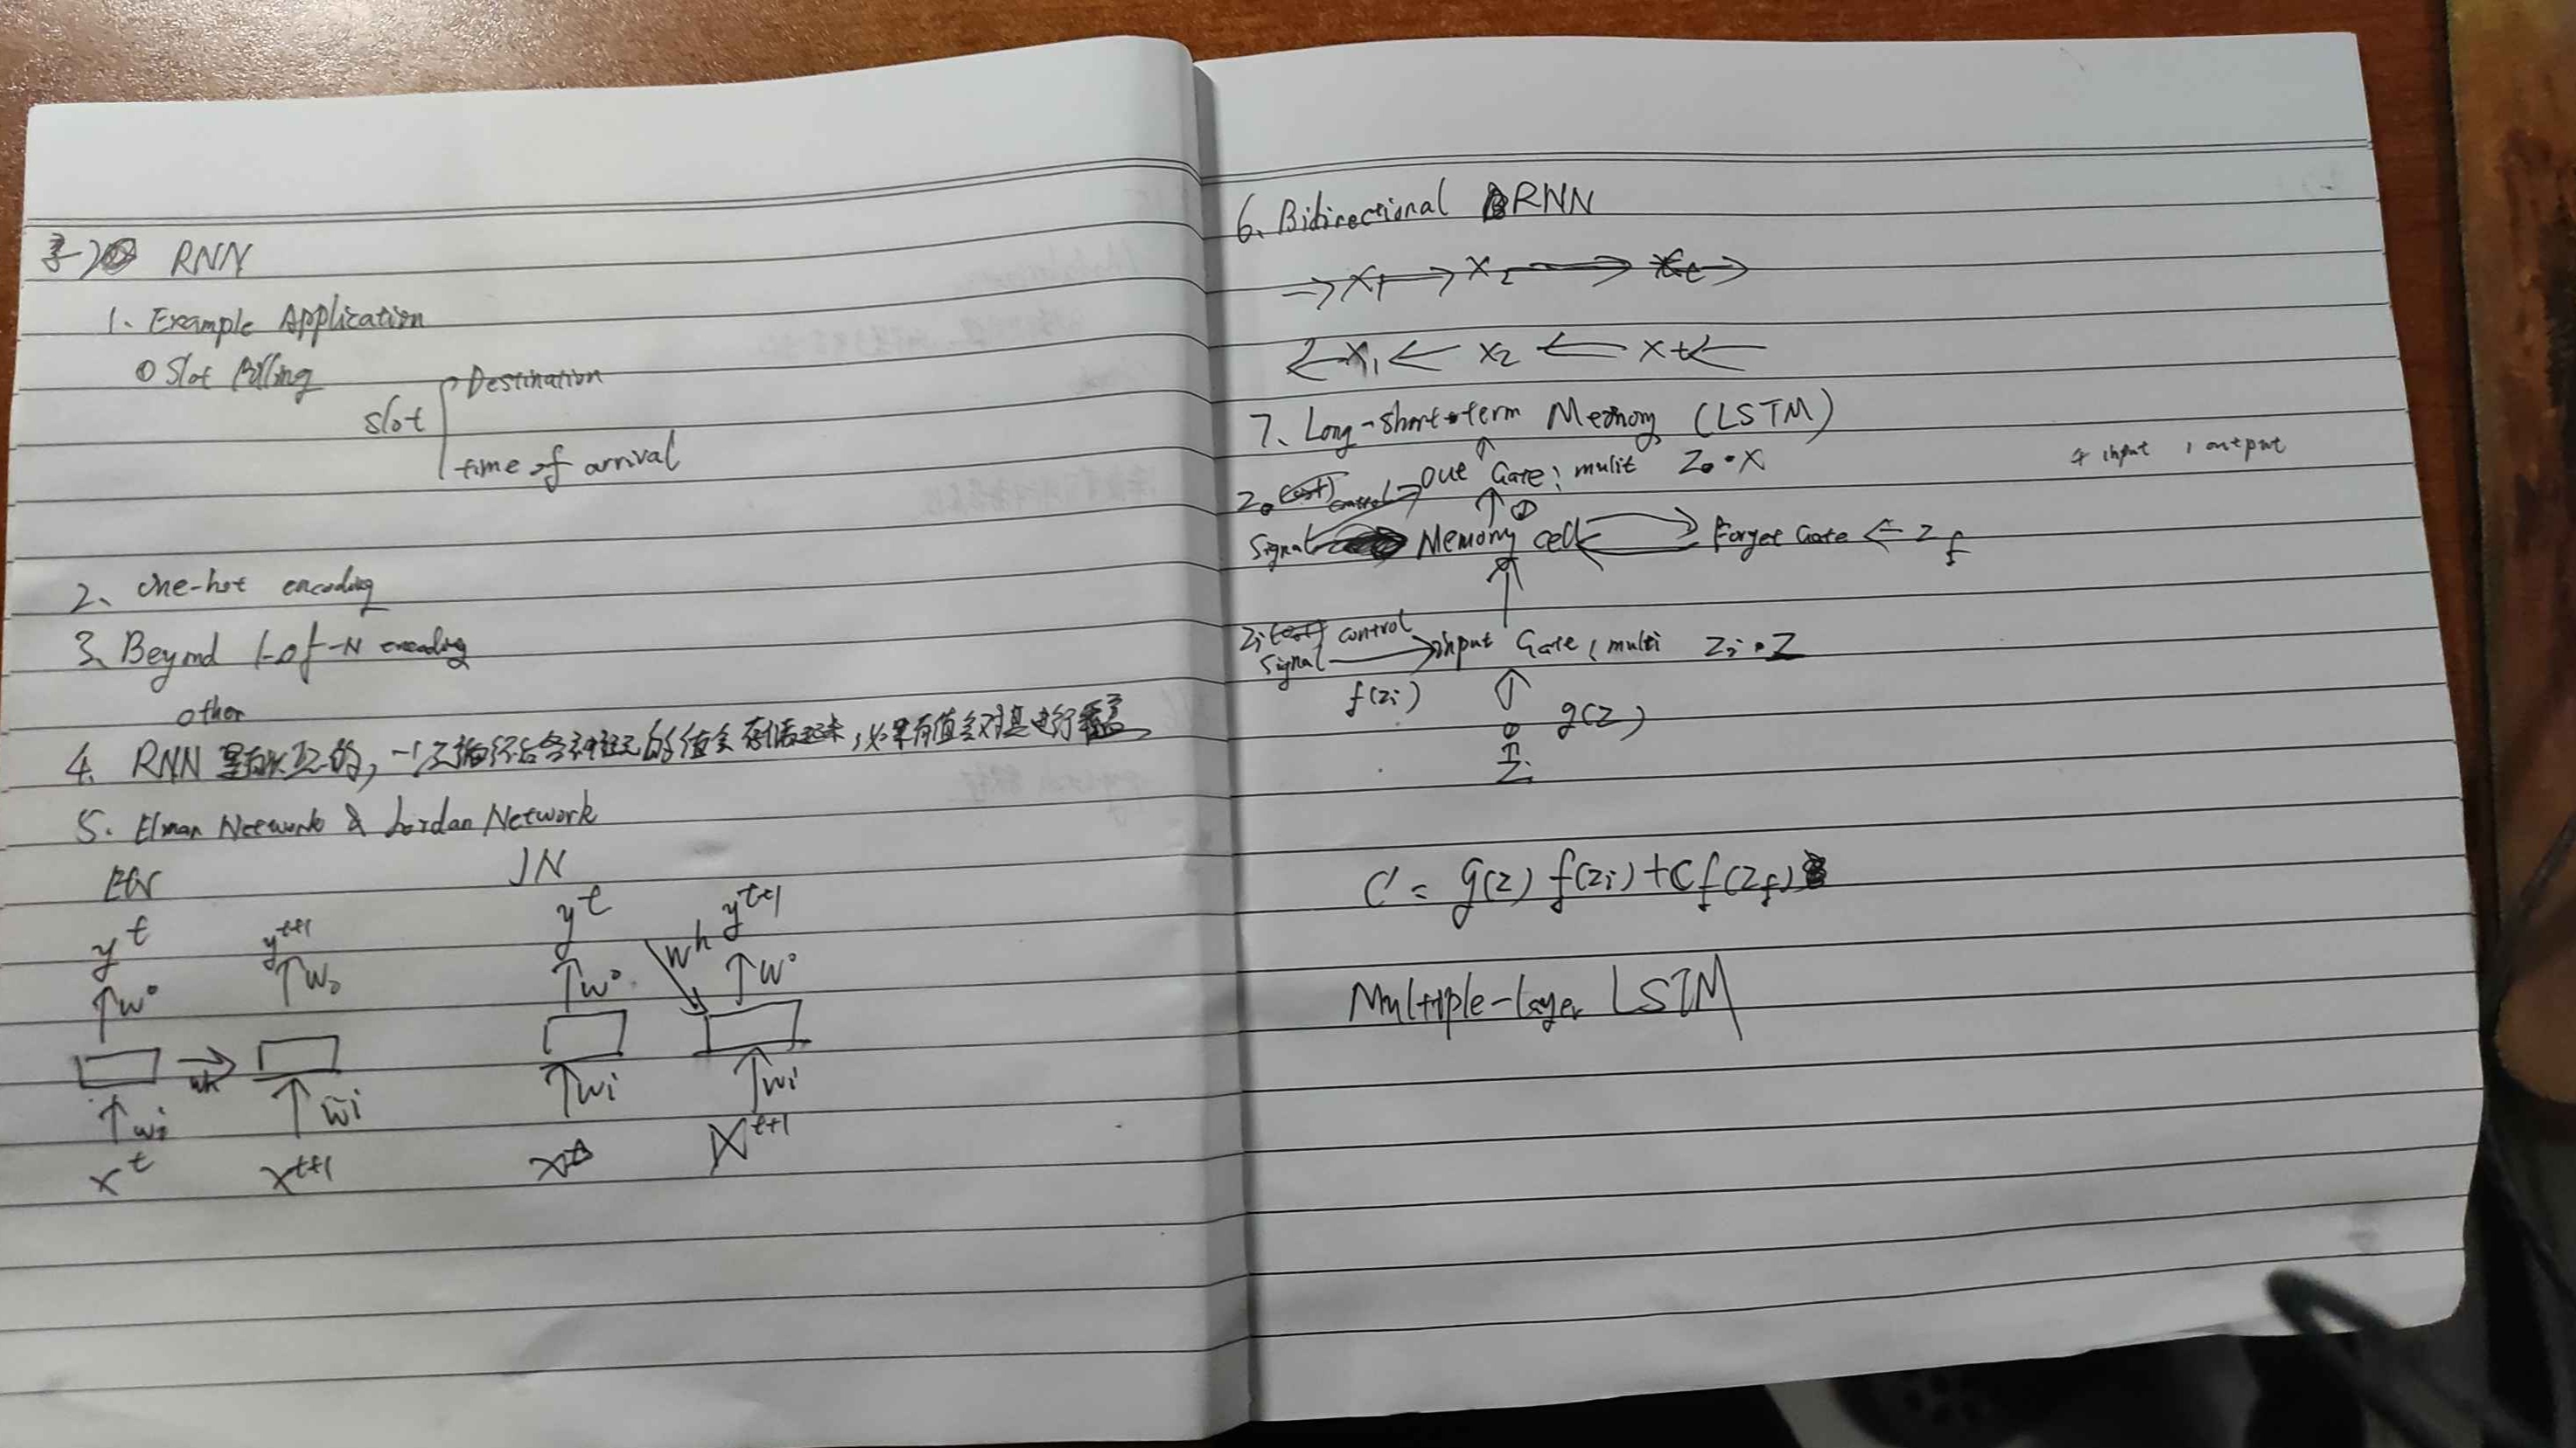 RNN
1、Example Application
① Slot filling
slot
Destination
time of arrival
2、one-hot encoding
3、Beyond 1-of-N encoding
other
4. RNN 的值会存储起来,如果有值会对其进行覆盖
5. Elman Network & Jordan Network
EN
JN
y^t y^t+1 y^t y^t+1
↑w^o ↑w_o ↑w^o wh ↑w^o
wh
↑wi ↑wi ↑wi ↑wi
x^t x^t+1 x^t X^t+1
6、Bidirectional RNN
→ x1 → x2 → xt →
← x1 ← x2 ← xt ←
7、Long-short-term Memory (LSTM)
4 input 1 output
Zo control → Out Gate: mulit Zo·X
Signal Memory cell Forget Gate ← Zf
Zi control
Signal → input Gate: multi Zi·Z
f(Zi)
g(Z)
Z
C' = g(Z) f(Zi) + C f(Zf)
Multiple-layer LSTM